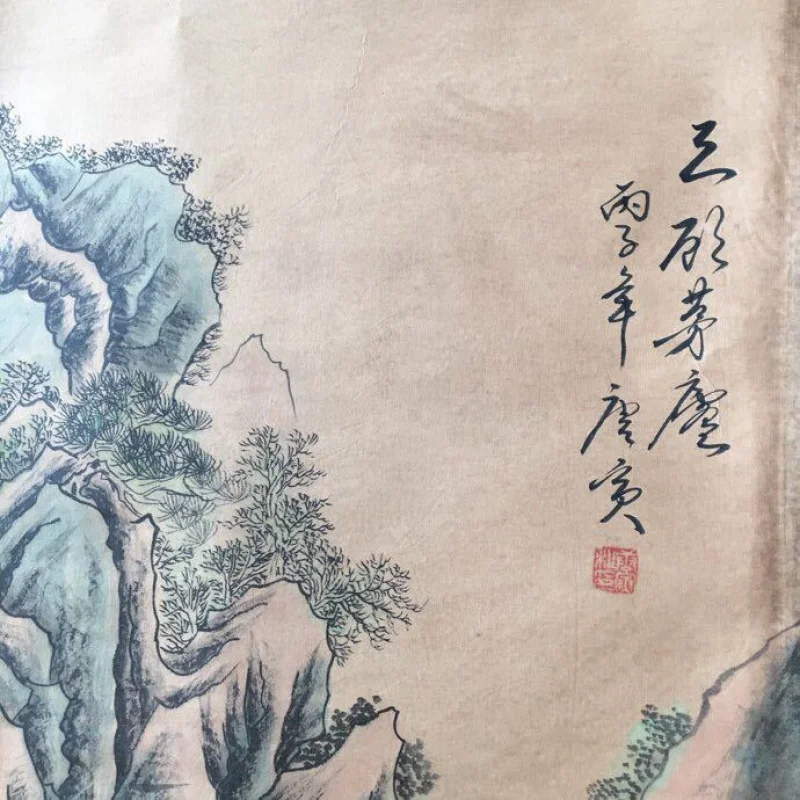 三顾茅廬
丙子年唐寅